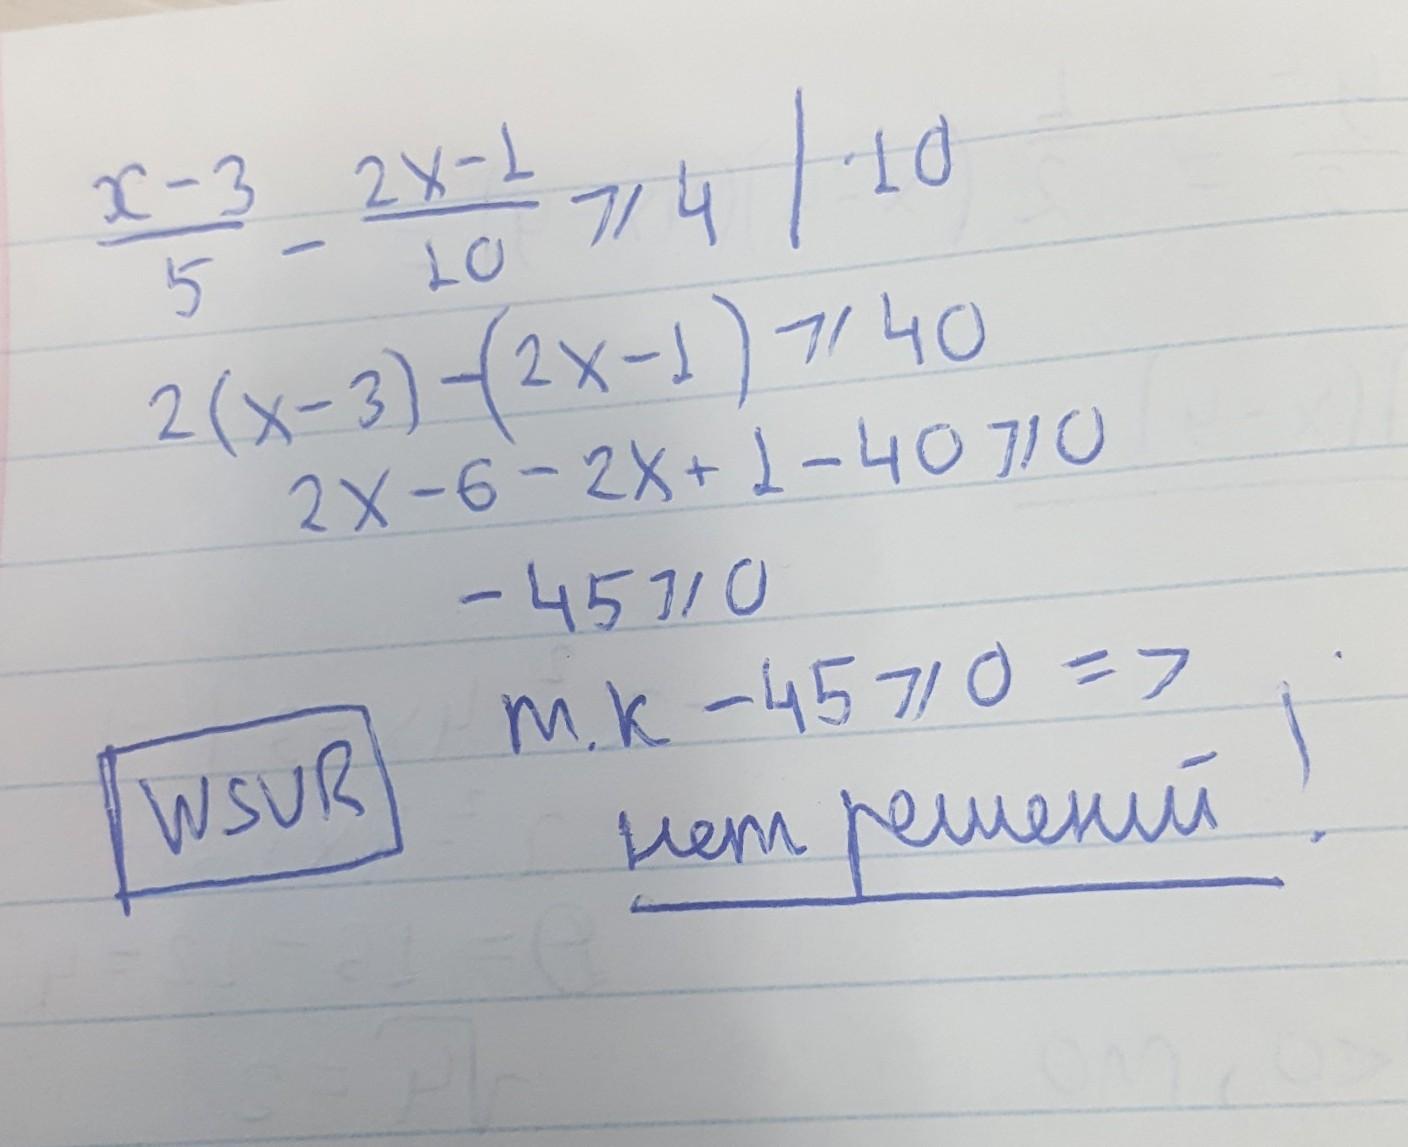 x-3/5 - 2x-1/10 ⩾ 4 | ·10
2(x-3)-(2x-1) ⩾ 40
2x-6-2x+1-40 ⩾ 0
-45 ⩾ 0
т.к -45 ⩾ 0 =>
нет решений!
WSUR